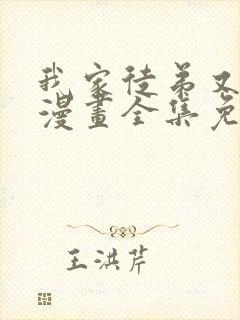 我家徒弟又
漫畫全集免
王洪芹